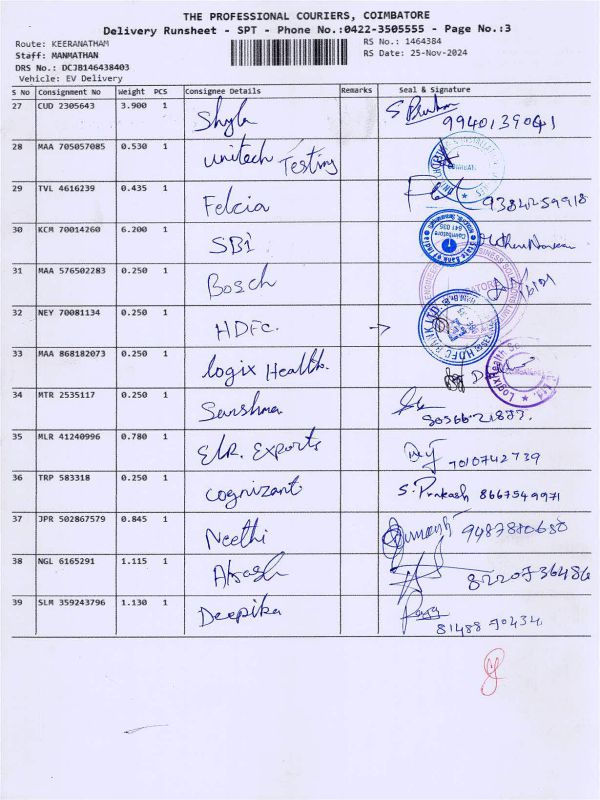 THE PROFESSIONAL COURIERS, COIMBATORE
Delivery Runsheet - SPT - Phone No.:0422-3505555 - Page No.:3
Route: KEERANATHAM RS No.: 1464384
Staff: MANMATHAN RS Date: 25-Nov-2024
DRS No.: DCJB146438403
Vehicle: EV Delivery
S No Consignment No Weight PCS Consignee Details Remarks Seal & Signature
27 CUD 2305643 3.900 1 Shyla 9940139041
28 MAA 705057085 0.530 1 unitech Testing
29 TVL 4616239 0.435 1 Felcia 9384259918
30 KCM 70014260 6.200 1 SBi State Bank of India
31 MAA 576502283 0.250 1 Bosch
32 NEY 70081134 0.250 1 HDFC. → HDFC BANK LTD
33 MAA 868182073 0.250 1 logix Health.
34 MTR 2535117 0.250 1
35 MLR 41240996 0.780 1 Exports 7010742739
36 TRP 583318 0.250 1 cognizant S. Prakash 8667549971
37 JPR 502867579 0.845 1 Neethi 9487880680
38 NGL 6165291 1.115 1 Akash 8220736486
39 SLM 359243796 1.130 1 Deepika 81488 90434